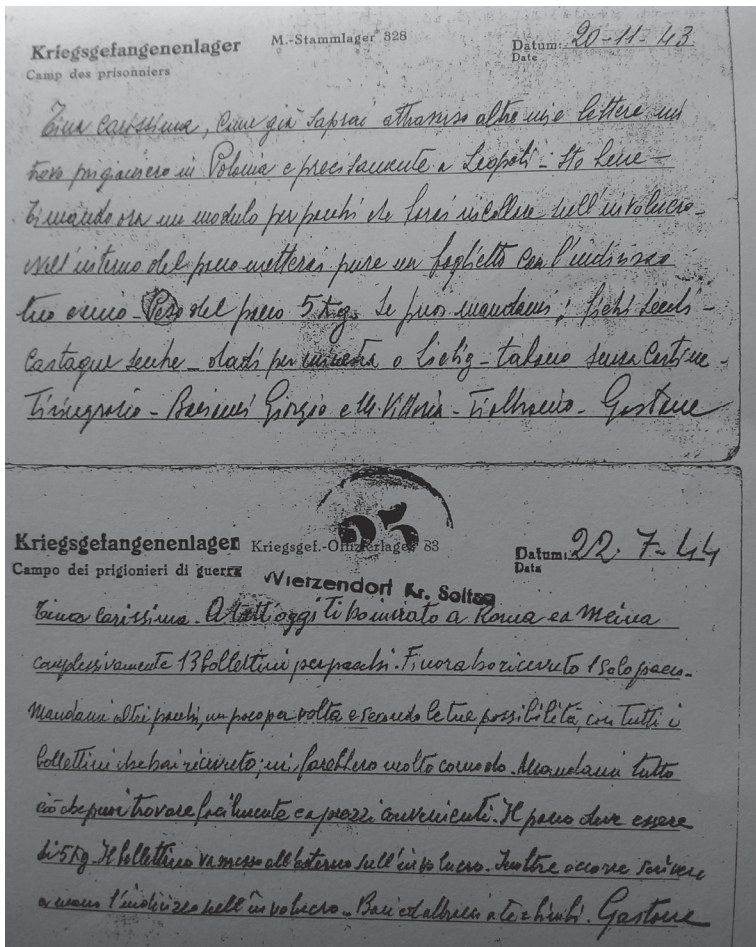 Kriegsgefangenenlager M.-Stammlager 328 Datum: 20-11-43
Camp des prisonniers Date
Tina carissima, come già saprai attraverso altre mie lettere mi
trovo prigioniero in Polonia e precisamente a Leopoli - Sto bene -
Ti mando ora un modulo per pacchi che farai incollare sull'involucro -
Nell'interno del pacco metterai pure un foglietto con l'indirizzo
tuo e mio - Peso del pacco 5 Kg. Se puoi mandami: fichi secchi -
Castagne secche - dadi per minestra o Liebig - tabacco senza cartine -
Ti ringrazio - Baciami Giorgio e M. Vittoria - Ti abbraccio - Gastone
25
Kriegsgefangenenlager Kriegsgef.-Offizierlager 83 Datum: 22.7-44
Campo dei prigionieri di guerra Data
Wietzendorf Kr. Soltau
Tina carissima. A tutt'oggi ti ho inviato a Roma ed a Meina
complessivamente 13 bollettini per pacchi. Finora ho ricevuto 1 solo pacco.
Mandami altri pacchi, un poco per volta e secondo le tue possibilità, con tutti i
bollettini che hai ricevuto; mi farebbero molto comodo. Mandami tutto
ciò che puoi trovare facilmente e a prezzi convenienti. Il pacco deve essere
di 5 Kg. Il bollettino va messo all'esterno sull'involucro. Inoltre occorre scrivere
a mano l'indirizzo sull'involucro - Baci ed abbracci a te e bimbi. Gastone